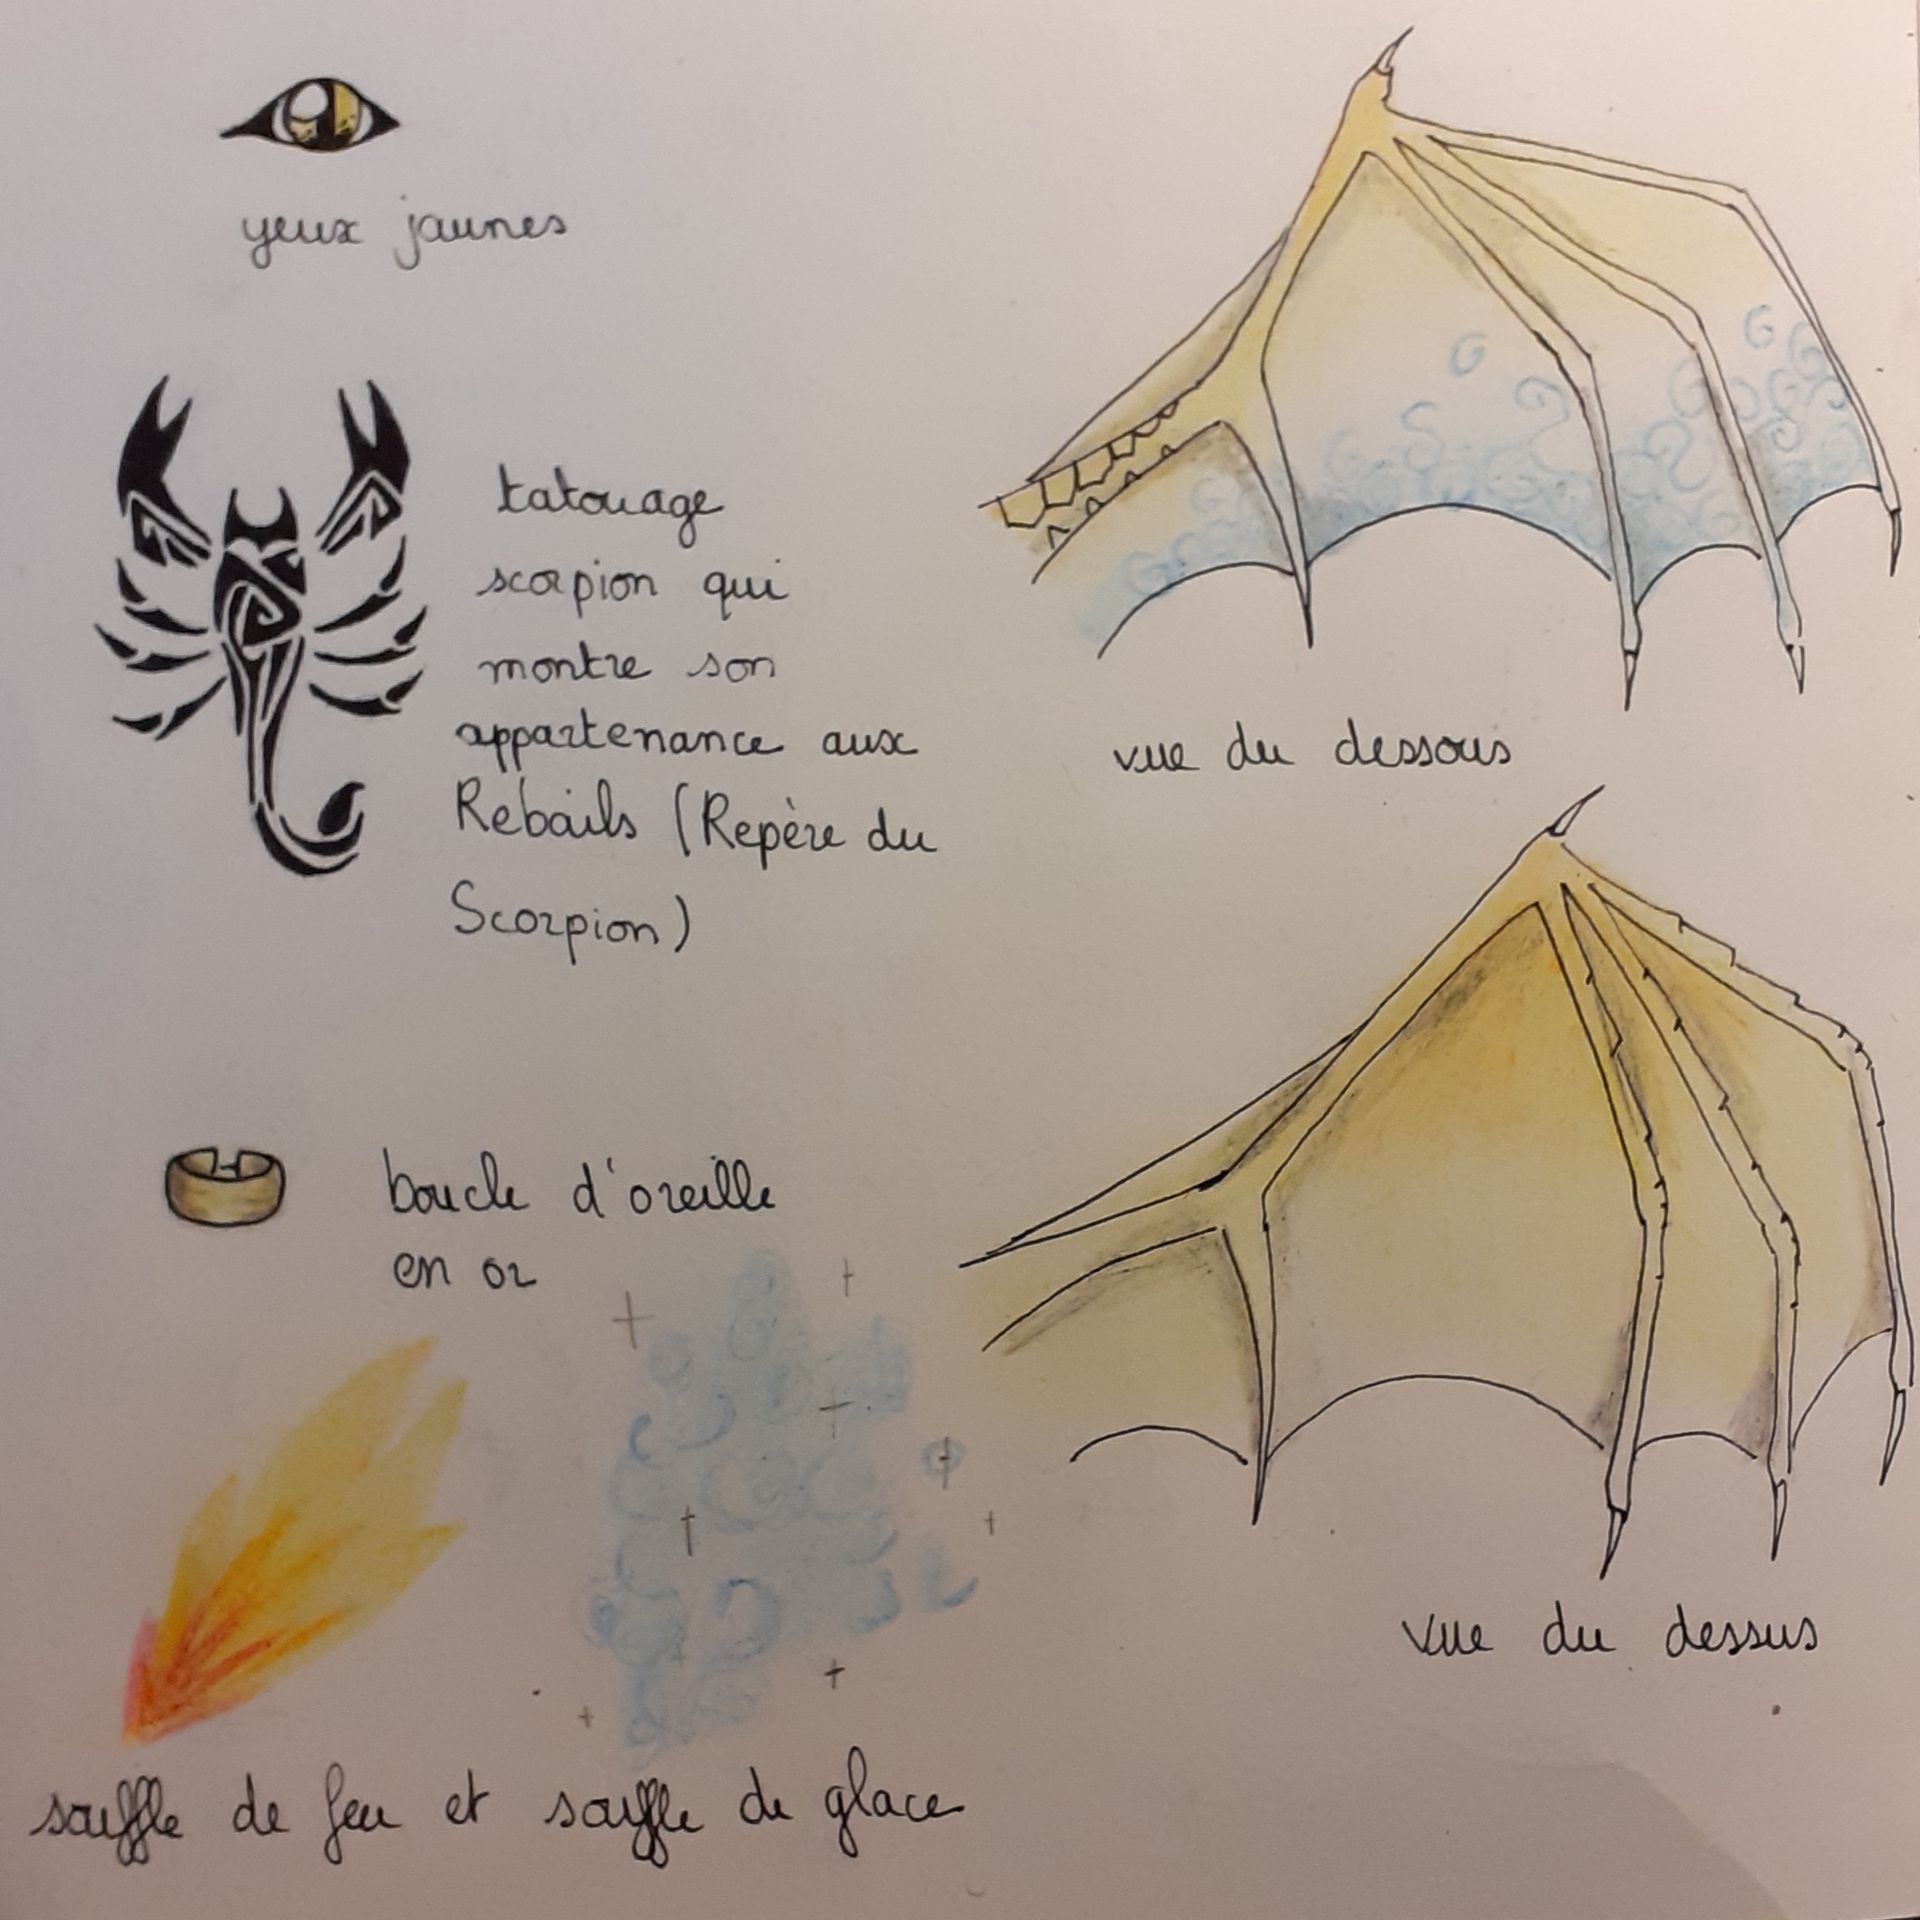 yeux jaunes
tatouage
scorpion qui
montre son
appartenance aux
Rebails (Repère du
Scorpion)
vue du dessous
boucle d'oreille
en or
vue du dessus
souffle de feu et souffle de glace